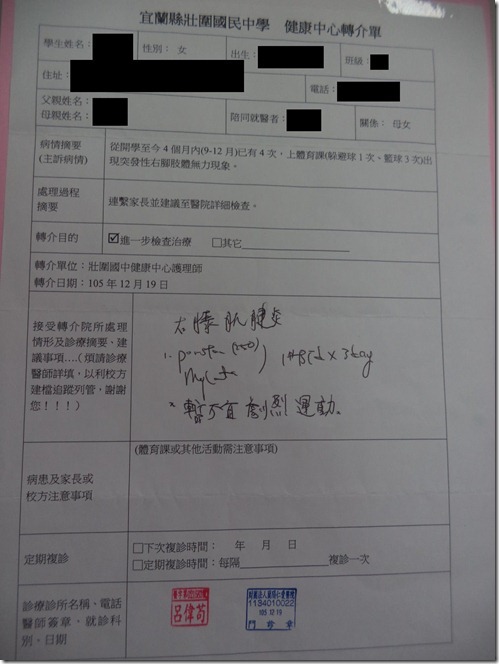 宜蘭縣壯圍國民中學 健康中心轉介單
學生姓名： 性別： 女 出生： 班級：
住址： 電話：
父親姓名：
母親姓名： 陪同就醫者： 關係： 母女
病情摘要
(主訴病情)
從開學至今 4 個月內(9-12 月)已有 4 次，上體育課(躲避球 1 次、籃球 3 次)出
現突發性右腳肢體無力現象。
處理過程
摘要
連繫家長並建議至醫院詳細檢查。
轉介目的 ☑進一步檢查治療 □其它
轉介單位：壯圍國中健康中心護理師
轉介日期：105 年 12 月 19 日
接受轉介院所處理
情形及診療摘要、建
議事項….（煩請診療
醫師詳填，以利校方
建檔追蹤列管，謝謝
您！！！）
肌腱炎
1. ponstan (250)
x 3day
* 暫不宜劇烈運動。
病患及家長或
校方注意事項
(體育課或其他活動需注意事項)
定期複診
□下次複診時間： 年 月 日
□定期複診時間：每隔 複診一次
診療診所名稱、電話
醫師簽章，就診科
別、日期
呂偉苛
1134010022
105.12.19
門診章